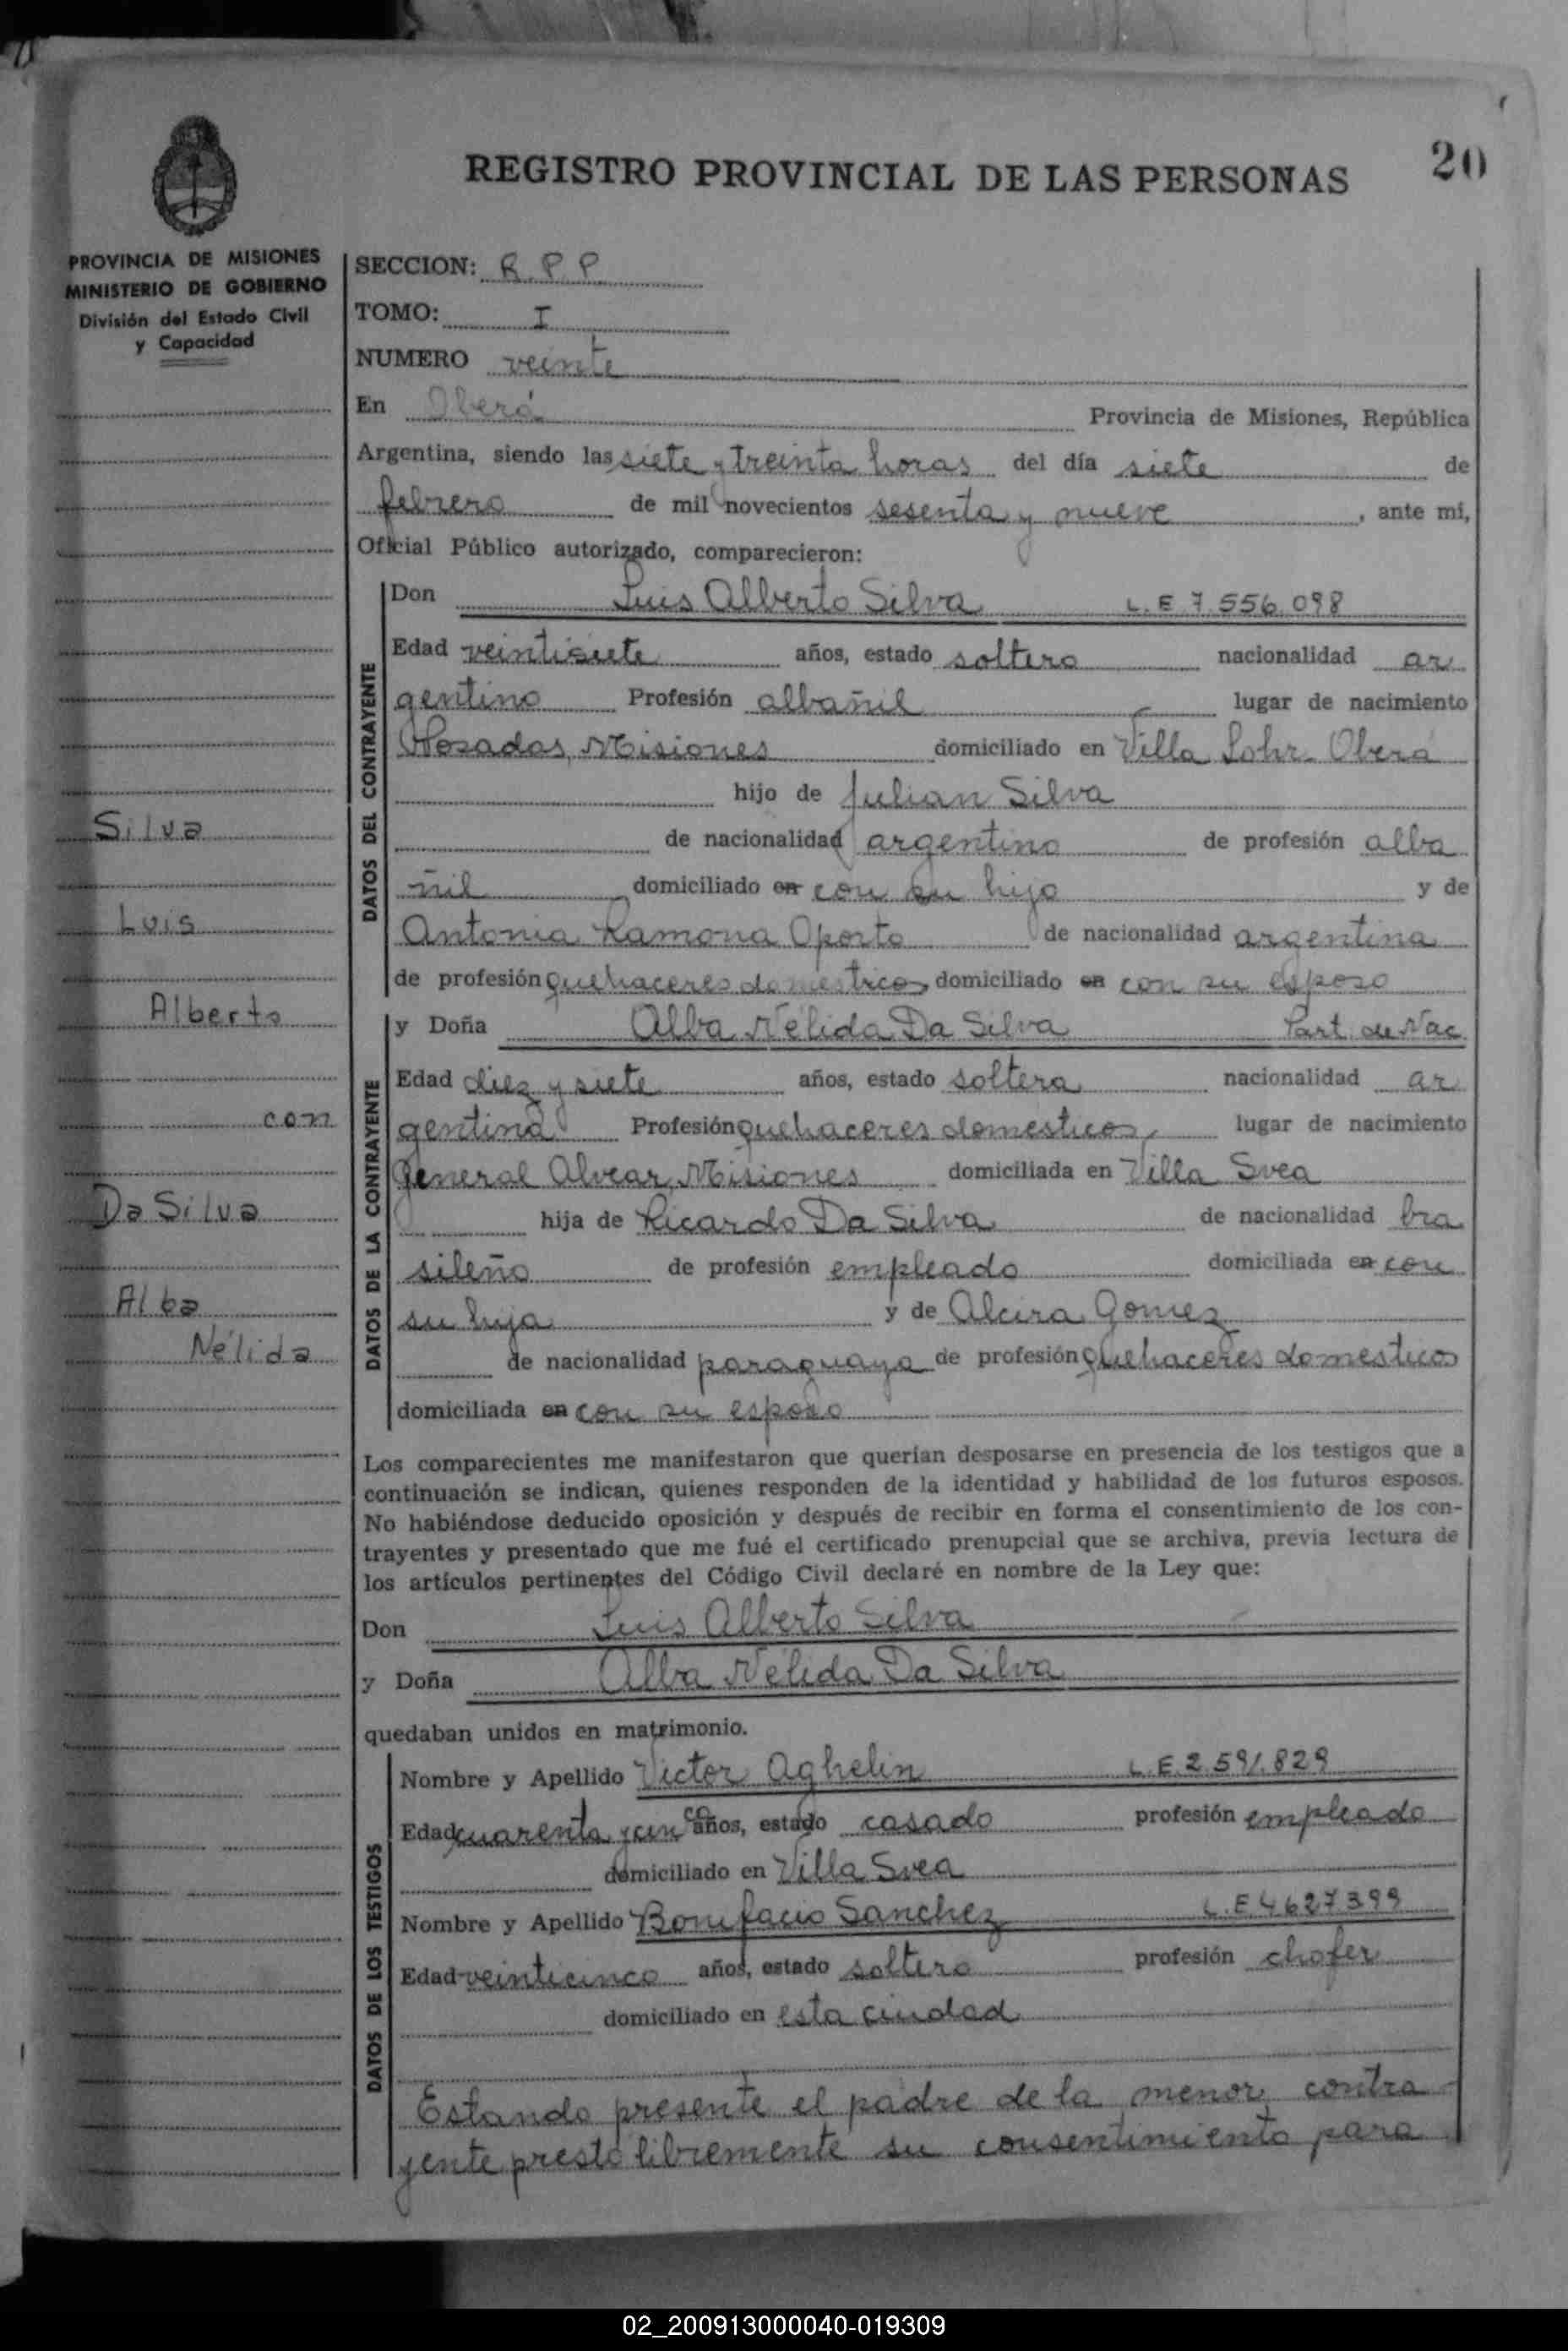 20
REGISTRO PROVINCIAL DE LAS PERSONAS
PROVINCIA DE MISIONES
MINISTERIO DE GOBIERNO
División del Estado Civil
y Capacidad
Silva
Luis
Alberto
con
Da Silva
Alba
Nélida
SECCION: R. P P
TOMO: I
NUMERO veinte
En Oberá Provincia de Misiones, República
Argentina, siendo las siete y treinta horas del día siete de
febrero de mil novecientos sesenta y nueve, ante mí,
Oficial Público autorizado, comparecieron:
DATOS DEL CONTRAYENTE
Don Luis Alberto Silva L. E 7.556.098
Edad veintisiete años, estado soltero nacionalidad ar
gentino Profesión albañil lugar de nacimiento
Posadas, Misiones domiciliado en Villa Lohr. Oberá
hijo de Julian Silva
de nacionalidad argentino de profesión alba
ñil domiciliado en con su hijo y de
Antonia Ramona Oporto de nacionalidad argentina
de profesión quehaceres domestricos domiciliado en con su esposo
DATOS DE LA CONTRAYENTE
y Doña Alba Nélida Da Silva Part. de Nac
Edad diez y siete años, estado soltera nacionalidad ar
gentina Profesión quehaceres domesticos, lugar de nacimiento
General Alvear, Misiones domiciliada en Villa Svea
hija de Ricardo Da Silva de nacionalidad bra
sileño de profesión empleado domiciliada en con
su hija y de Alcira Gomez
de nacionalidad paraguaya de profesión quehaceres domesticos
domiciliada en con su esposo
Los comparecientes me manifestaron que querían desposarse en presencia de los testigos que a
continuación se indican, quienes responden de la identidad y habilidad de los futuros esposos.
No habiéndose deducido oposición y después de recibir en forma el consentimiento de los con-
trayentes y presentado que me fué el certificado prenupcial que se archiva, previa lectura de
los artículos pertinentes del Código Civil declaré en nombre de la Ley que:
Don Luis Alberto Silva
y Doña Alba Nélida Da Silva
quedaban unidos en matrimonio.
DATOS DE LOS TESTIGOS
Nombre y Apellido Victor Aghelin L. E. 2.591.829
Edad cuarenta y cinco años, estado casado profesión empleado
domiciliado en Villa Svea
Nombre y Apellido Bonifacio Sanchez L. E 4.627.399
Edad veinticinco años, estado soltero profesión chofer
domiciliado en esta ciudad
Estando presente el padre de la menor, contra
yente prestó libremente su consentimiento para
02_200913000040-019309